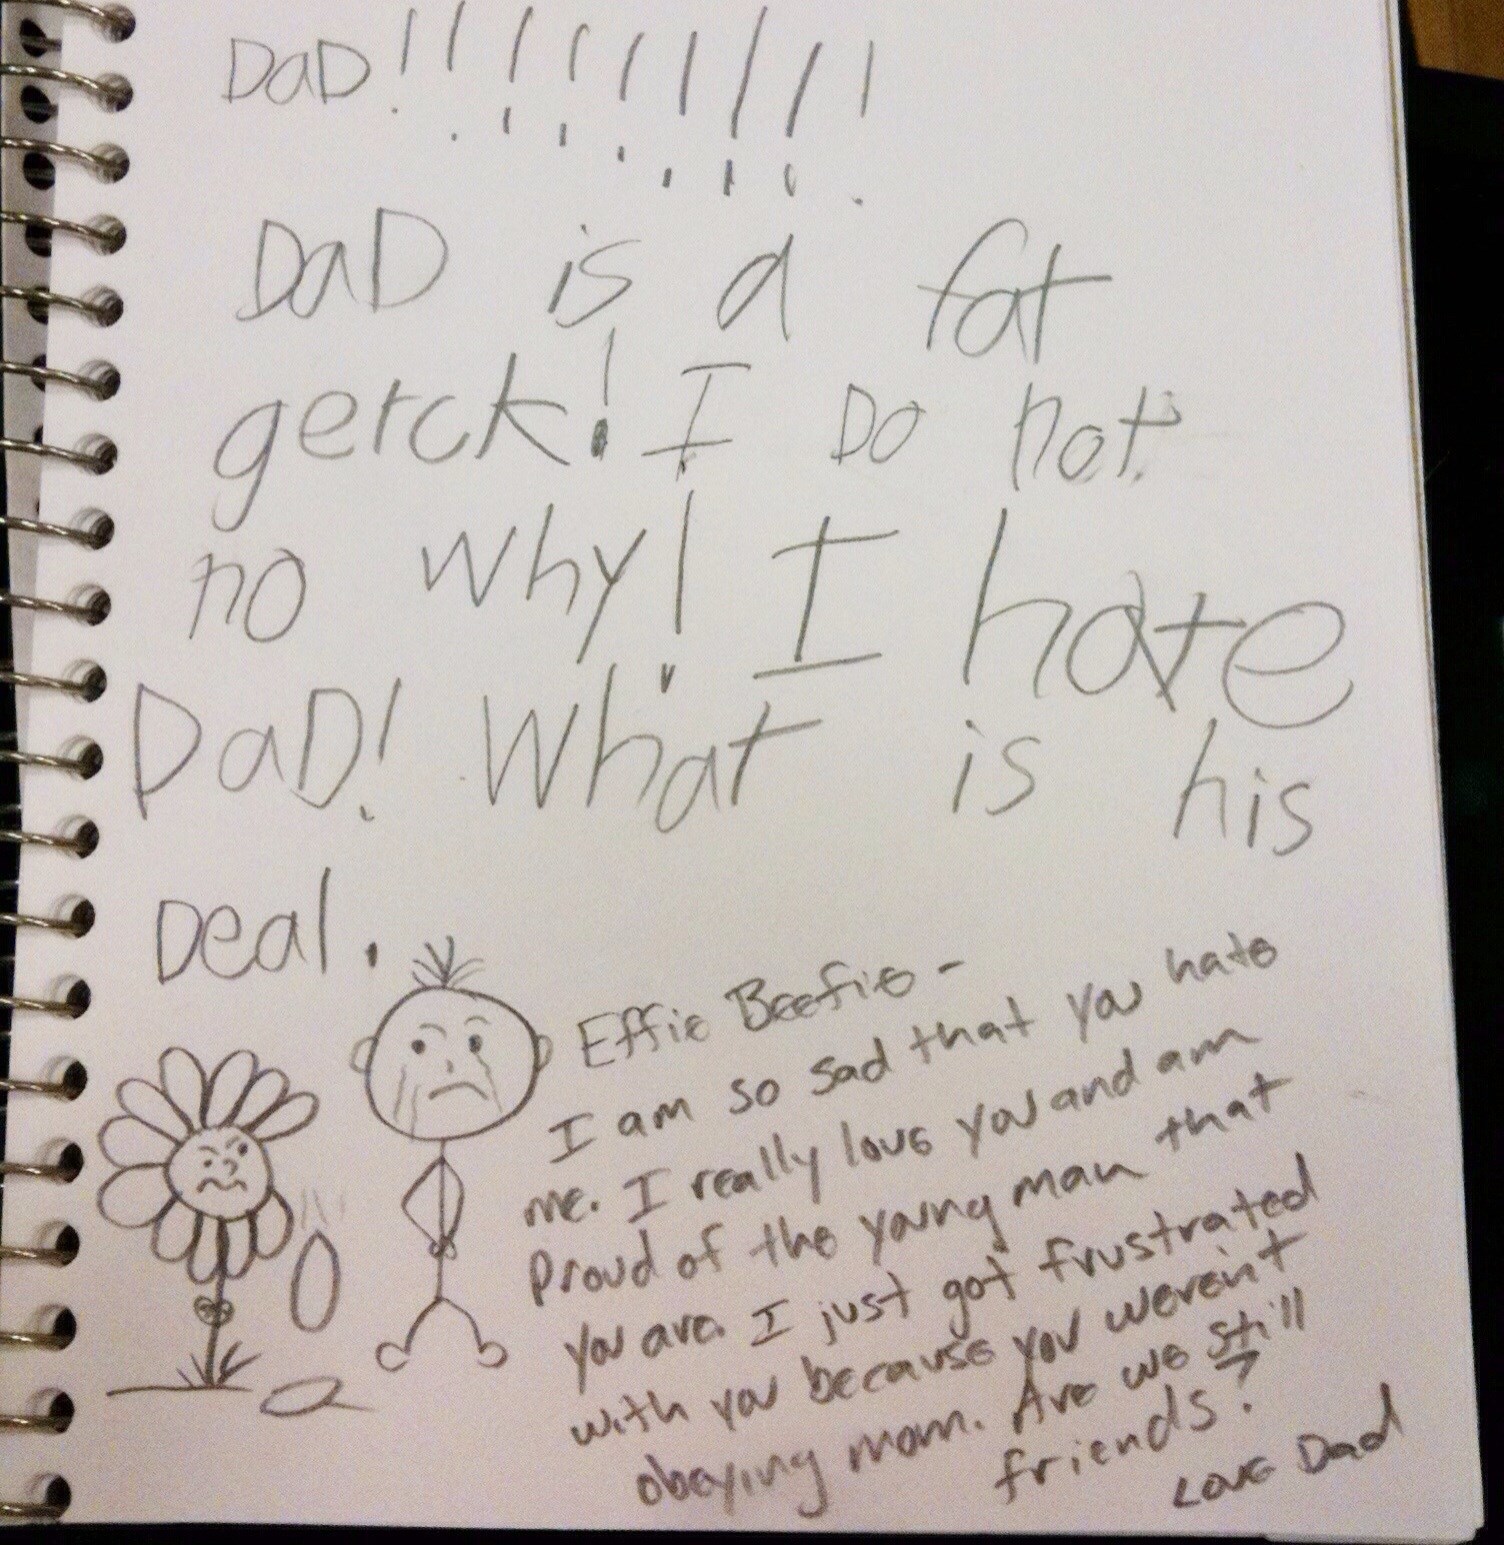 DaD!!!!!!!!!
DaD is a fat
gerck! I Do not
no why! I hate
DaD! What is his
Deal.
Effie Beefie -
I am so sad that you hate
me. I really love you and am
proud of the young man that
you are. I just got frustrated
with you because you weren't
obeying mom. Are we still
friends?
Love Dad